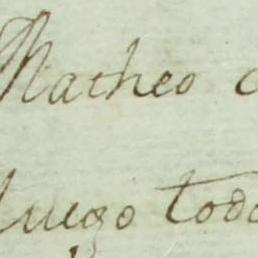 Matheo
luego todo